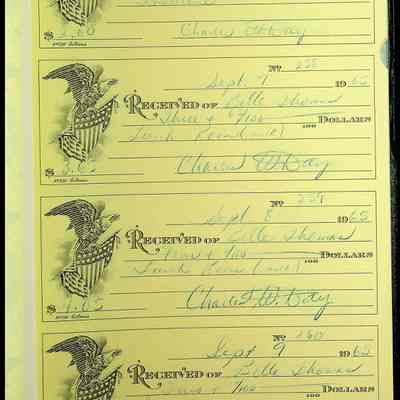 $ 2.60 Charles W. Day
No 258
Sept. 7 1965
RECEIVED OF Belle Thomas
Three + DOLLARS
100
Lunch Room (milk)
$ 3.65 Charles W. Day
No 259
Sept 8 1965
RECEIVED OF Belle Thomas
DOLLARS
100
Lunch Room (milk)
$ 1.65 Charles W. Day
No 260
Sept 9 1965
RECEIVED OF Belle Thomas
DOLLARS
100